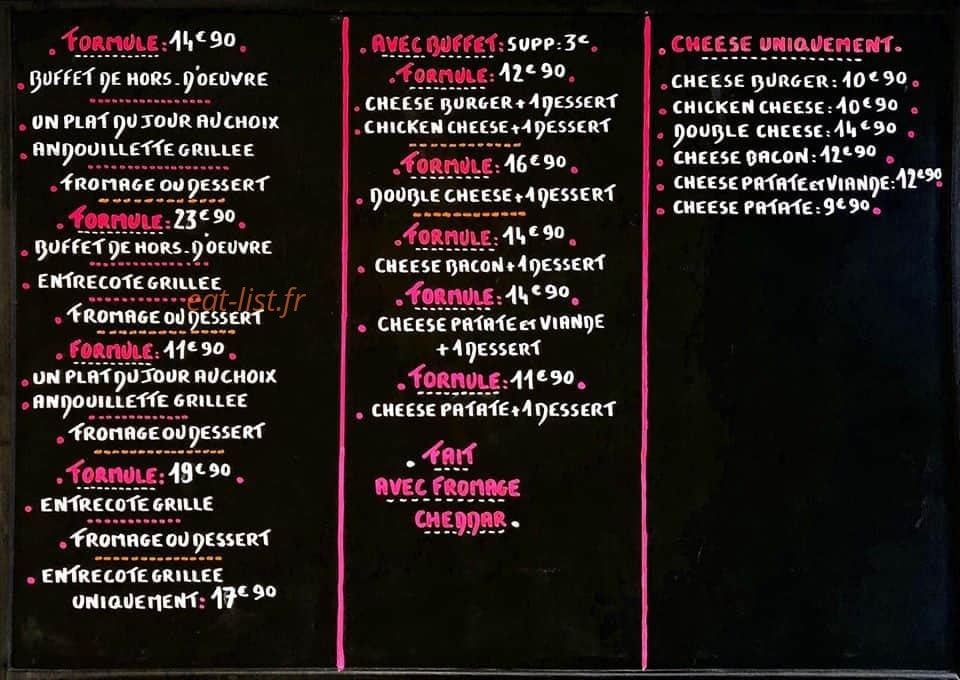 . FORMULE: 14€90.
. BUFFET DE HORS-D'OEUVRE
. UN PLAT DU JOUR AU CHOIX
. ANDOUILLETTE GRILLEE
. FROMAGE OU DESSERT
. FORMULE: 23€90.
. BUFFET DE HORS-D'OEUVRE
. ENTRECOTE GRILLEE
. FROMAGE OU DESSERT
. FORMULE: 11€90.
. UN PLAT DU JOUR AU CHOIX
. ANDOUILLETTE GRILLEE
. FROMAGE OU DESSERT
. FORMULE: 19€90.
. ENTRECOTE GRILLE
. FROMAGE OU DESSERT
. ENTRECOTE GRILLEE
UNIQUEMENT: 17€90
. AVEC BUFFET: SUPP: 3€.
. FORMULE: 12€90.
. CHEESE BURGER + 1 DESSERT
. CHICKEN CHEESE + 1 DESSERT
. FORMULE: 16€90.
. DOUBLE CHEESE + 1 DESSERT
. FORMULE: 14€90.
. CHEESE BACON + 1 DESSERT
. FORMULE: 14€90.
. CHEESE PATATE et VIANDE
+ 1 DESSERT
. FORMULE: 11€90.
. CHEESE PATATE + 1 DESSERT
. FAIT
AVEC FROMAGE
CHEDDAR.
. CHEESE UNIQUEMENT.
. CHEESE BURGER: 10€90.
. CHICKEN CHEESE: 10€90.
. DOUBLE CHEESE: 14€90.
. CHEESE BACON: 12€90.
. CHEESE PATATE et VIANDE: 12€90
. CHEESE PATATE: 9€90.
eat-list.fr